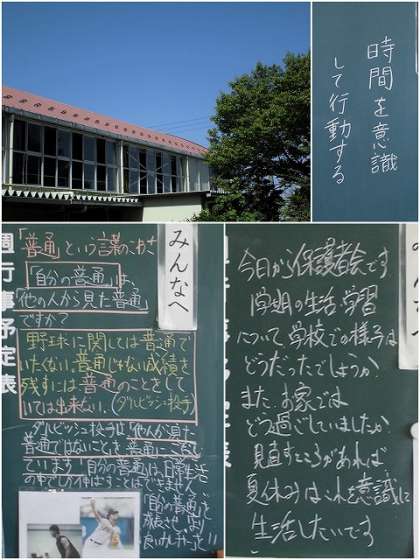 時間を意識
して行動する
みんなへ
「普通」という言葉のこわさ
「自分の普通」は、
「他の人から見た普通」
ですか？
野球に関しては普通で
いたくない。普通じゃない成績を
残すには普通のことをして
いては出来ない。(ダルビッシュ投手)
ダルビッシュ投手は「他人から見た
普通ではないことを普通にこなし
ています「自分の普通」は、日常生活
の中でしか伸ばすことはできません
「自分の普通」を
週行事予定表
今日から保護者会です
学校での様子は
どうだったでしょうか
また、お家では
どう過ごしていましたか
見直すところがあれば
夏休みはこれを意識に
生活したいです